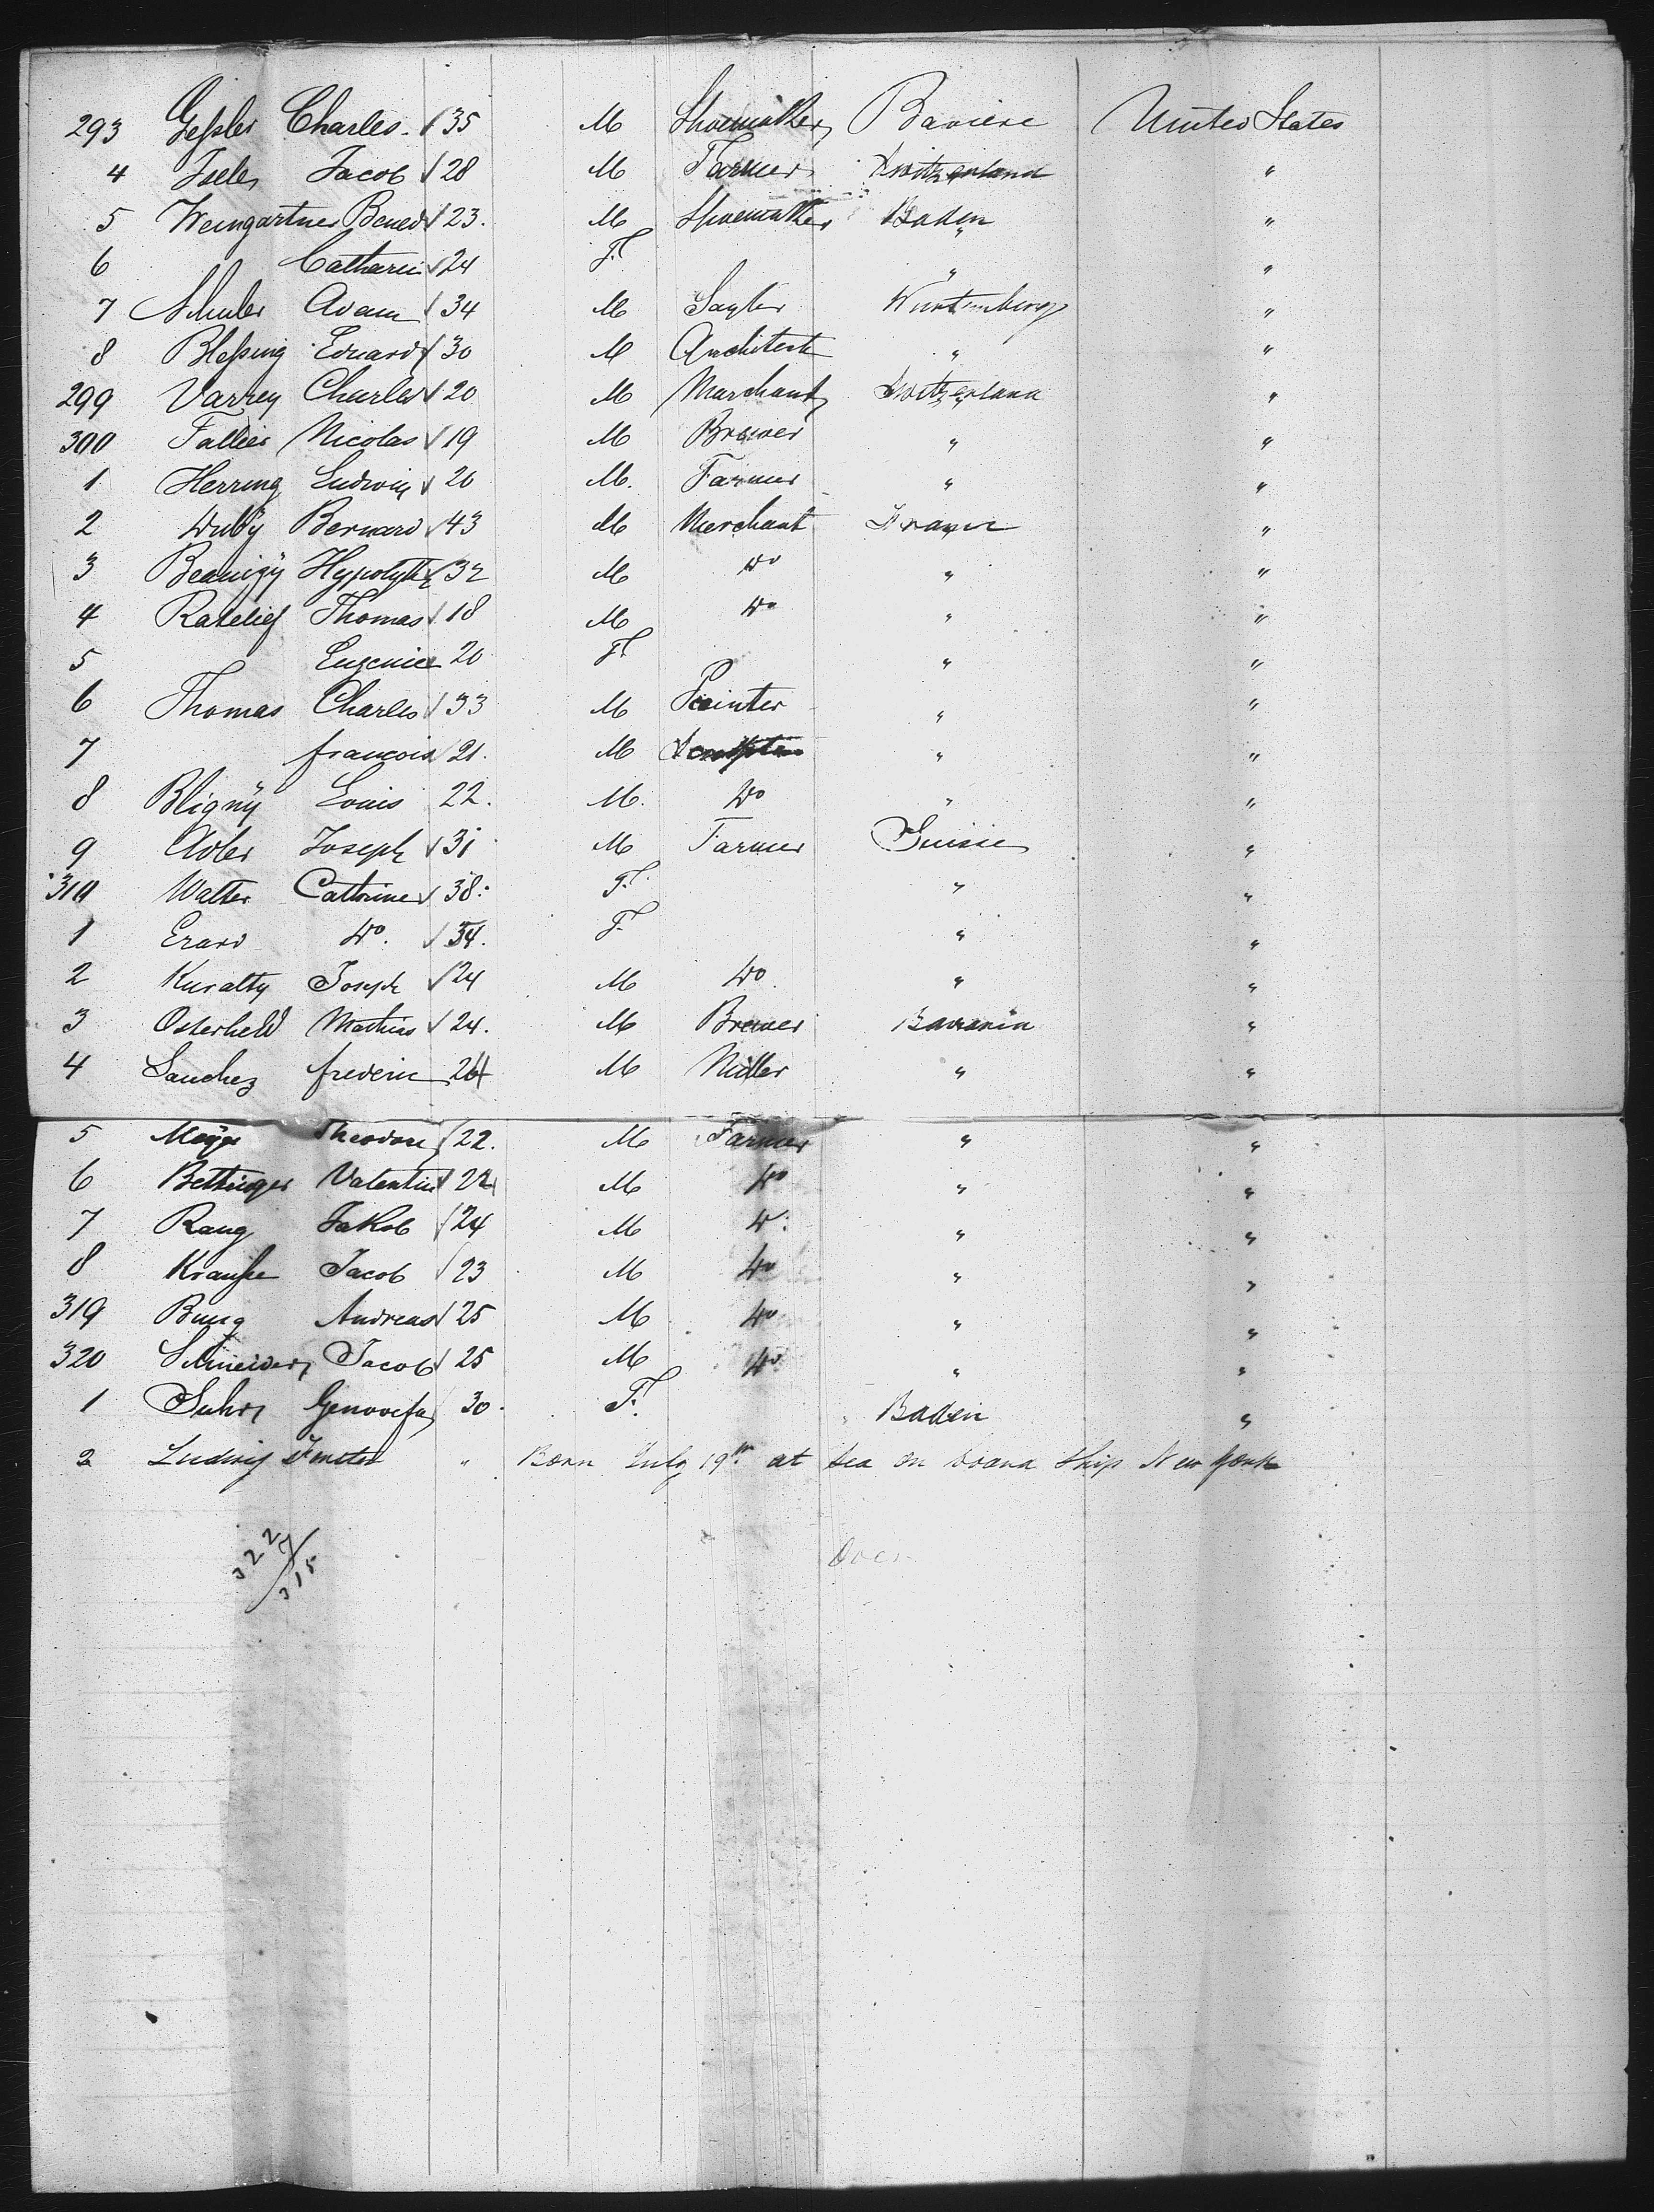 293 Gessler Charles 35 M Shoemaker Baviere United States
4 Iseler Jacob 28 M Farmer Switzerland "
5 Weingartner Bened 23. M Shoemaker Baden "
6 Catharin 24 F. " "
7 Schuler Adam 34 M Sayler Wurtemberg "
8 Blessing Eduard 30 M Architect " "
299 Varrey Charles 20 M Marchant Switzerland "
300 Fallier Nicolas 19 M Brewer " "
1 Herring Ludwig 20 M. Farmer " "
2 Duby Bernard 43 M Merchant France "
3 Hypolythe 32 M do " "
4 Ratelief Thomas 18 M do " "
5 Eugenie 20 F. " "
6 Thomas Charles 33 M Painter " "
7 francois 21. M " "
8 Bligny Louis 22. M. do " "
9 Adler Joseph 31 M Farmer Suisse "
310 Walter Catharine 38. F. " "
1 Erard do. 34. F. " "
2 Kuratty Joseph 24 M do " "
3 Osterheld Mathias 24. M Brewer Bavaria "
4 Sanchez frederic 24 M Miller " "
5 Theodore 22. M Farmer " "
6 Bettinger Valentin 22 M do " "
7 Rang Jakob 24 M do " "
8 Krausse Jacob 23 M do " "
319 Bung Andreas 25 M do " "
320 Schneider Jacob 25 M do " "
1 Suhr Genovefa 30. F. Baden "
2 Ludwig " Born July 19th at sea on board ship New York
322
7
315
Over